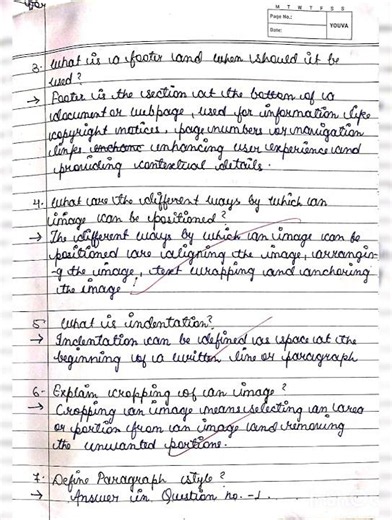 M T W T F S S
Page No.:
Date:
YOUVA
3. What is a footer and when should it be
used?
→ Footer is the section at the bottom of a
document or webpage, used for information like
copyright notices, page numbers or navigation
links enhancing user experience and
providing contextual details.
4. What are the different ways by which an
image can be positioned?
→ The different ways by which an image can be
positioned are aligning the image, arrangin-
-g the image, text wrapping and anchoring
the image!
5. What is indentation?
→ Indentation can be defined as space at the
beginning of a written line or paragraph
6. Explain cropping of an image?
→ Cropping an image means selecting an area
or portion from an image and removing
the unwanted portions.
7. Define Paragraph style?
→ Answer in Question no. -1.